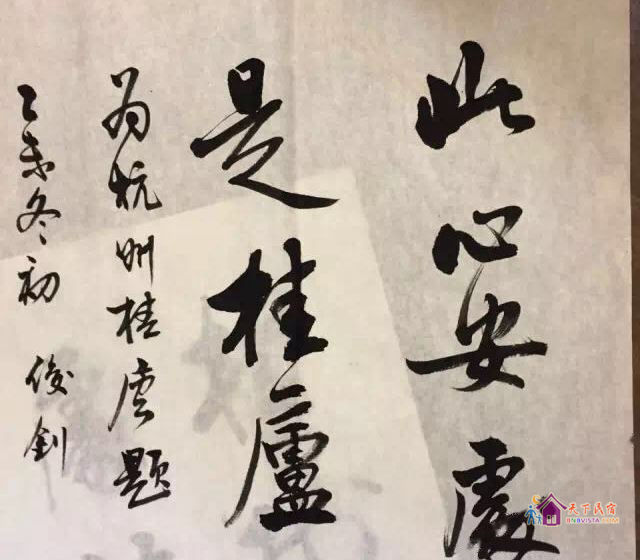 此心安處
是桂廬
为杭州桂庐题
乙未冬初 俊釗
天下民宿
BNBVISTA.COM